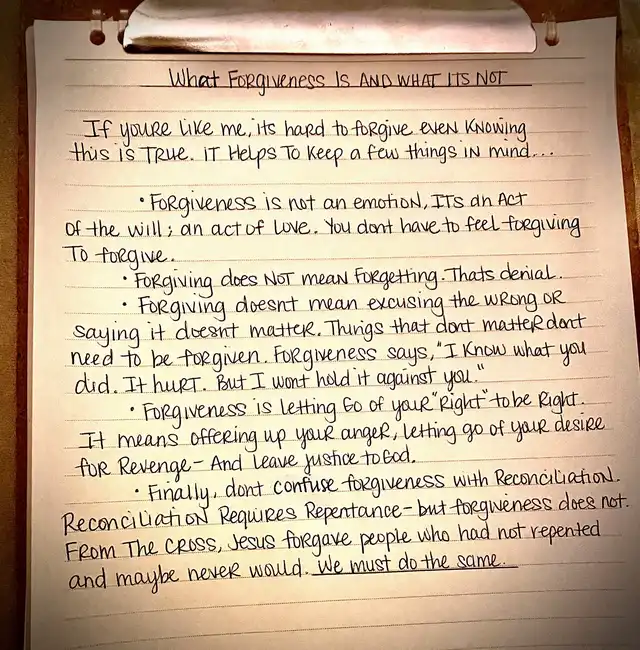 What Forgiveness Is AND WHAT ITS NOT
If youRe like me, its hard to forgive even Knowing
this is TRUE. IT Helps To Keep a few things IN mind...
• FORGIVENESS is not an emotion, ITs an Act
Of the will; an act of Love. You dont have to feel forgiving
To forgive.
• Forgiving does NOT mean Forgetting. Thats denial.
• Forgiving doesnt mean excusing the WRONG OR
saying it doesnt matter. Things that dont matter dont
need to be forgiven. Forgiveness says, "I Know what you
did. It hurt. But I wont hold it against you."
• Forgiveness is Letting Go of your "Right" to be Right.
It means offering up your anger, letting go of your desire
for Revenge - And Leave justice to God.
• Finally, dont confuse forgiveness with Reconciliation.
Reconciliation Requires Repentance - but forgiveness does not.
From The Cross, Jesus forgave people who had not repented
and maybe never would. We must do the same.